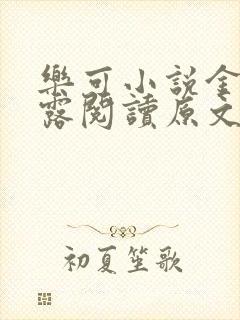 樂可小說金
露閱讀原文
初夏笙歌